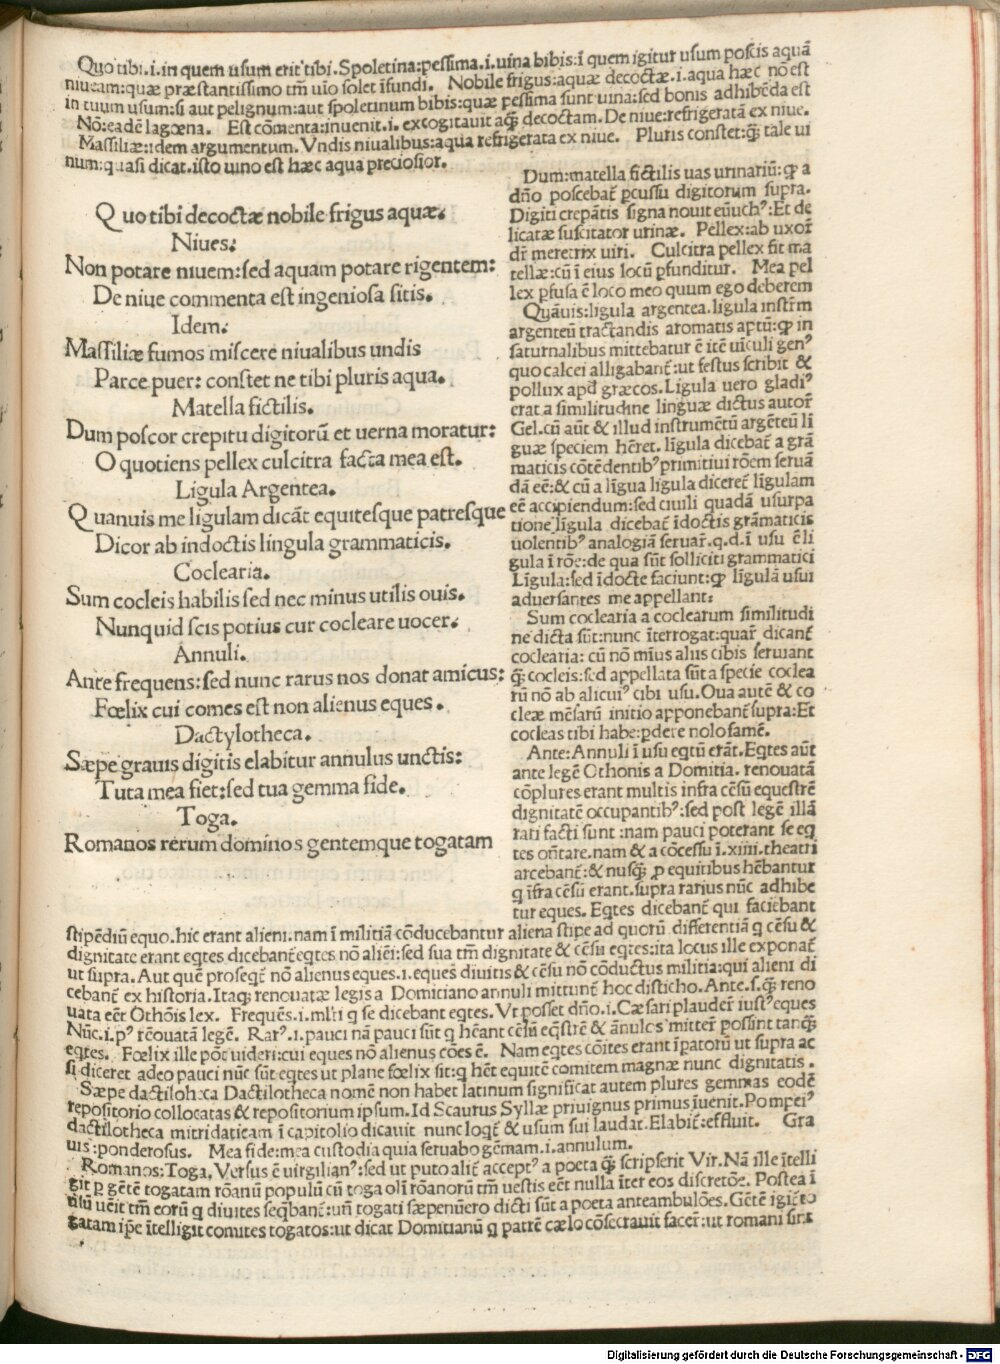 Quo tibi.i.in quem usum erit tibi.Spoletina:pessima.i.uina bibis:ī quem igitur usum poscis aquā
niueam:quæ præstantissimo tm̄ uīo solet īfundi. Nobile frigus:aquæ decoctæ.i.aqua hæc nō est
in tuum usum:si aut pelignum:aut spoletinum bibis:quæ pessima sunt uina:sed bonis adhibēda est
Nō:eadē lagœna. Est cōmenta:inuenit.i.excogitauit aq̄ decoctam.De niue:refrigeratā ex niue.
Massiliæ:idem argumentum.Vndis niualibus:aqua refrigerata ex niue. Pluris constet:q̄ tale ui
num:quasi dicat.isto uino est hæc aqua preciosior.
Quo tibi decoctæ nobile frigus aquæ.
Niues:
Non potare niuem:sed aquam potare rigentem:
De niue commenta est ingeniosa sitis.
Idem:
Massiliæ fumos miscere niualibus undis
Parce puer: constet ne tibi pluris aqua.
Matella fictilis.
Dum poscor crepitu digitorū et uerna moratur:
O quotiens pellex culcitra facta mea est.
Ligula Argentea.
Quanuis me ligulam dicāt equitesque patresque
Dicor ab indoctis lingula grammaticis.
Coclearia.
Sum cocleis habilis sed nec minus utilis ouis.
Nunquid scis potius cur cocleare uocer.
Annuli.
Ante frequens:sed nunc rarus nos donat amicus:
Fœlix cui comes est non alienus eques.
Dactylotheca.
Sæpe grauis digitis elabitur annulus unctis:
Tuta mea fiet:sed tua gemma fide.
Toga.
Romanos rerum dominos gentemque togatam
Dum:matella fictilis uas urinariū:ꝙ a
dn̄o poscebat᷑ ꝑcussu digitorum supra.
Digiti crepātis signa nouit eūuchꝰ:Et de
licatæ suscitator urinæ. Pellex:ab uxor᷑
dr̄ meretrix uiri. Culcitra pellex fit ma
tellæ:cū ī eius locū ꝑfunditur. Mea pel
lex ꝑfusa ē loco meo quum ego deberem
Quāuis:ligula argentea.ligula instr̄m
argenteū tractandis aromatis aptū:ꝙ in
saturnalibus mittebatur ē itē uiculi genꝰ
quo calcei alligabant᷑:ut festus scribit &
pollux apd̄ græcos.Ligula uero gladiꝰ
erat a similitudine linguæ dictus autor᷑
Gel.cū aūt & illud instrumētū argēteū li
guæ speciem hēret. līgula dicebat᷑ a grā
maticis cōtēdentibꝰ primitiui rōem seruā
dā eē:& cū a līgua ligula diceret᷑ līgulam
eē accipiendum:sed ciuili quadā usurpa
tione līgula dicebat᷑ īdoctis grāmaticis
uolentibꝰ analogiā seruar᷑.q.d.ī usu ē li
gula ī rōe:de qua sūt solliciti grammatici
Līgula:sed īdocte faciunt:ꝙ līgulā usui
aduersantes me appellant:
Sum coclearia a coclearum similitudi
ne dicta sūt:nunc īterrogat:quar᷑ dicant᷑
coclearia: cū nō mīus aliis cibis seruiant
q̄ cocleis:sed appellata sūt a specie coclea
rū nō ab alicuiꝰ cibi usu.Oua autē & co
cleæ mēsarū initio apponebant᷑ supra:Et
cocleas tibi habe:ꝑdere nolo famē.
Ante:Annuli ī usu eqtū erāt.Eqtes aūt
ante legē Othonis a Domitia. renouatā
cōplures erant multis infra cēsū equestrē
dignitatē occupantibꝰ:sed post legē illā
rati facti sunt:nam pauci poterant se eq
tes on̄tare.nam & a cōcessu ī.xiiii.theatri
arcebant᷑:& nusq̄ ꝓ equitibus hēbantur
q īfra cēsū erant.supra rarius nūc adhibe
tur eques. Eqtes dicebant᷑ qui faciebant
stipēdiū equo.hic erant alieni.nam ī militiā cōducebantur aliena stipe ad quorū differentiā q cēsu &
dignitate erant eqtes dicebant᷑ eqtes nō aliēi:sed sua tm̄ dignitate & cēsu eqtes:ita locus ille exponat᷑
ut supra.Aut quē prosequit᷑ nō alienus eques.i.eques diuitis & cēsu nō cōductus militia:qui alieni di
cebant᷑ ex historia.Itaq; renouatæ legis a Domitiano annuli mittunt᷑ hoc disticho.Ante.s.q; reno
uata eēt Othōis lex. Frequēs.i.ml̄ti q se dicebant eqtes.Vt posset dn̄o.i.Cæsari plauder᷑ iustꝰ eques
Nūc.i.pꝰ rēouatā legē. Rarꝰ.i.pauci nā pauci sūt q hēant cēsū eq̄strē & ānulos mitter᷑ possint tanq̄
eqtes. Fœlix ille pōt uideri:cui eques nō alienus cōes ē. Nam eqtes cōites erant īpatorū ut supra ac
si diceret adeo pauci nūc sūt eqtes ut plane fœlix sit:q hēt equitē comitem magnæ nunc dignitatis.
Sæpe dactilohæca Dactilotheca nomē non habet latinum significat autem plures gemmas eodē
repositorio collocatas & repositorium ipsum.Id Scaurus Syllæ priuignus primus īuenit.Pompeiꝰ
dactilotheca mitridaticam ī capitolio dicauit nunc loqt᷑ & usum sui laudat.Elabit᷑:effluit. Gra
uis:ponderosus. Mea fide:mea custodia quia seruabo gēmam.i.annulum.
Romanos:Toga, Versus ē uirgilianꝰ:sed ut puto alit᷑ acceptꝰ a poeta q̄ scripserit Vir.Nā ille ītelli
git ꝑ gētē togatam rōanū populū cū toga olī rōanorū tm̄ uestis eēt nulla īter eos discretōe. Postea ī
usū uēit tm̄ eorū q diuites seq̄bant᷑:un̄ togati sæpenūero dicti sūt a poeta anteambulōes.Gētē igit᷑ to
gatam ip̄e ītelligit comites togatos:ut dicat Domitianū q patrē cælo cōsecrauit facer᷑:ut romani sint
Digitalisierung gefördert durch die Deutsche Forschungsgemeinschaft - DFG